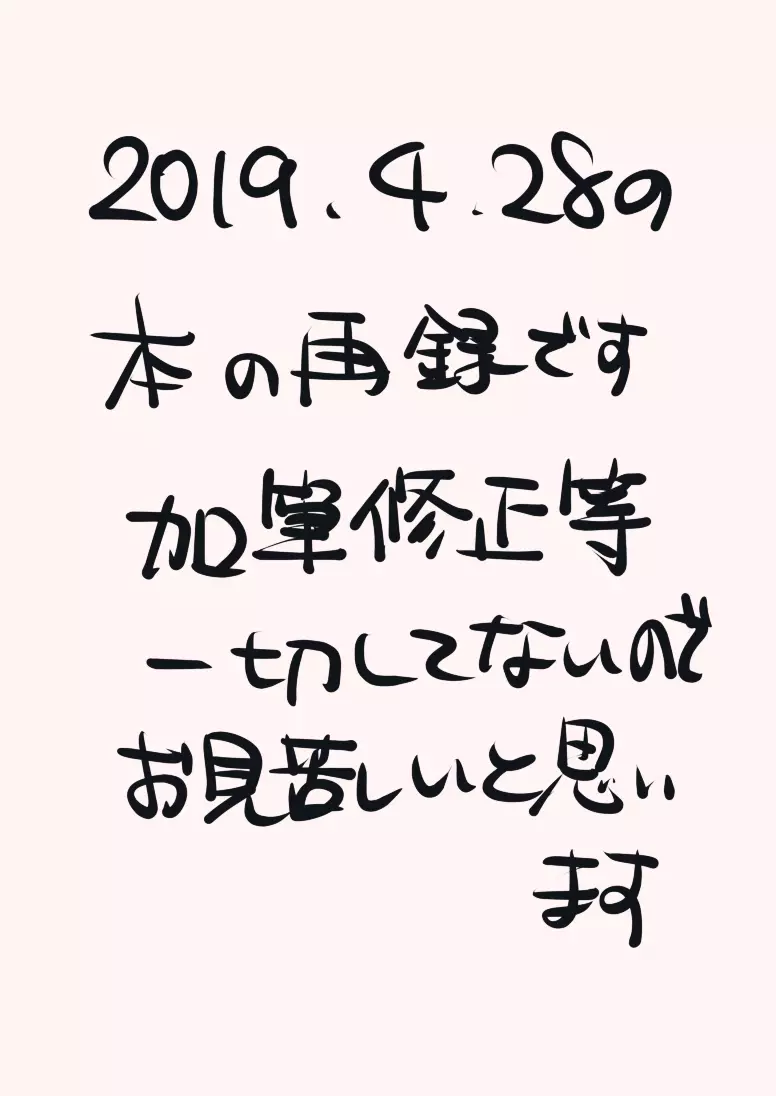 2019.4.28の
本の再録です
加筆修正等
一切してないので
お見苦しいと思い
ます